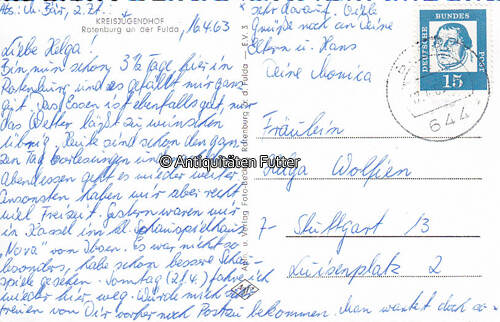 Abs: M. Bär, z. Zt.
KREISJUGENDHOF
Rotenburg an der Fulda
16.4.63
Liebe Helga!
Bin nun schon 3½ Tage hier in
Rotenburg und es gefällt mir ganz
gut. Das Essen ist ebenfalls gut, nur
das Wetter läßt zu wünschen
übrig. Heute sind schon den gan-
zen Tag Vorlesungen und
Abendessen geht es wieder weiter
Ansonsten haben wir aber recht
viel Freizeit. Gestern waren wir
in Kassel im all. Schauspielhaus
„Nora" von Ibsen. Es war nicht so
besonders, habe schon bessere Schau-
spiele gesehen. Sonntag (21.4.) fahre ich
wieder hier weg. Würde mich sehr
freuen von Dir vorher noch Post zu bekommen. Man wartet doch so
sehr darauf. Viele
Grüße noch an Deine
Eltern u. Hans
Deine Monica
E.V. 3
Rotenburg a. d. Fulda
Aufn. u. Verlag Foto-
© Antiquitäten Futter
DEUTSCHE BUNDESPOST
15
644
Fräulein
Helga Wolfien
7- Stuttgart 13
Luisenplatz 2